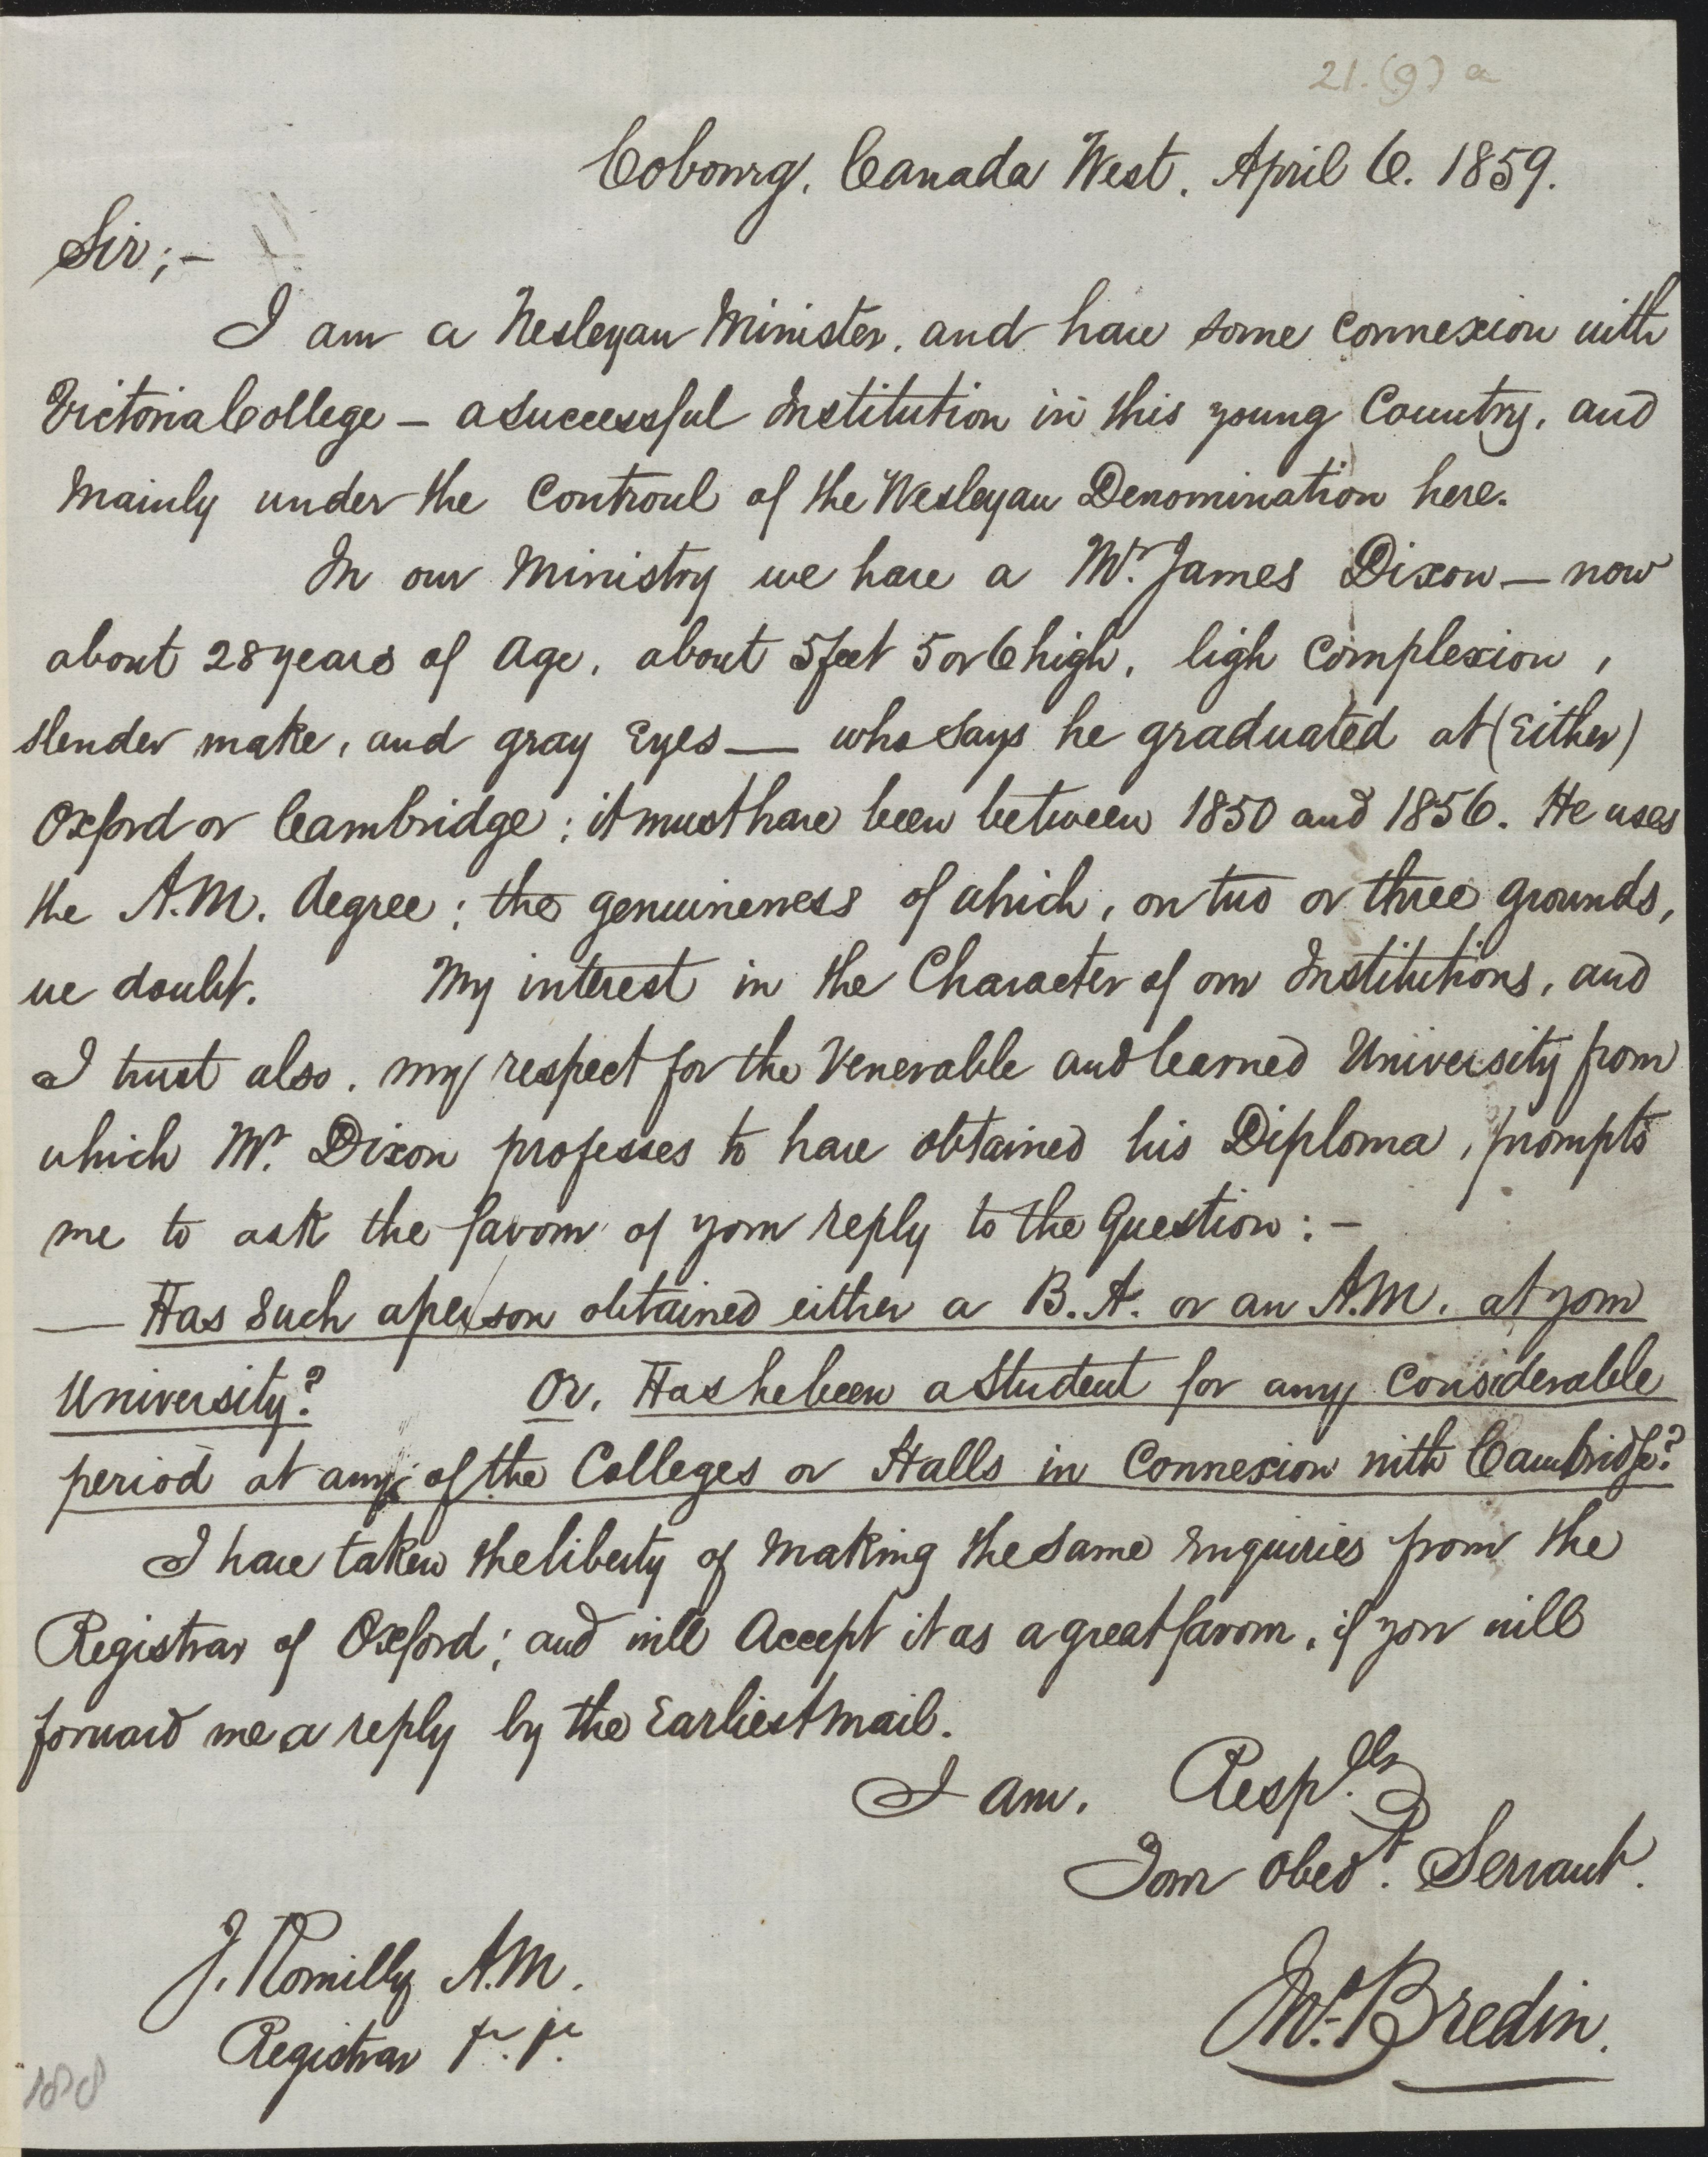 21.(9) a
Cobourg, Canada West, April 6. 1859.
Sir;-
I am a Wesleyan Minister, and have some connexion with
Victoria College — a successful Institution in this young Country, and
mainly under the Controul of the Wesleyan Denomination here.
In our Ministry we have a Mr. James Dixon — now
about 28 years of Age, about 5 feet 5 or 6 high, ligh complexion,
slender make, and gray Eyes — who says he graduated at (Either)
Oxford or Cambridge; it must have been between 1850 and 1856. He uses
the A.M. degree; the genuineness of which, on two or three grounds,
we doubt. My interest in the Character of our Institutions, and
I trust also, my respect for the Venerable and learned University from
which Mr. Dixon professes to have obtained his Diploma, prompts
me to ask the favour of your reply to the Question:-
— Has such a person obtained either a B.A. or an A.M. at your
University? Or, Has he been a Student for any considerable
period at any of the Colleges or Halls in Connexion with Cambridge?
I have taken the liberty of making the same Enquiries from the
Registrar of Oxford; and will Accept it as a great favour, if you will
forward me a reply by the Earliest mail.
I am, Resp.lly
Your Obed.t Servant.
Jno. Bredin.
J. Romilly A.M.
Registrar &c. &c.
188